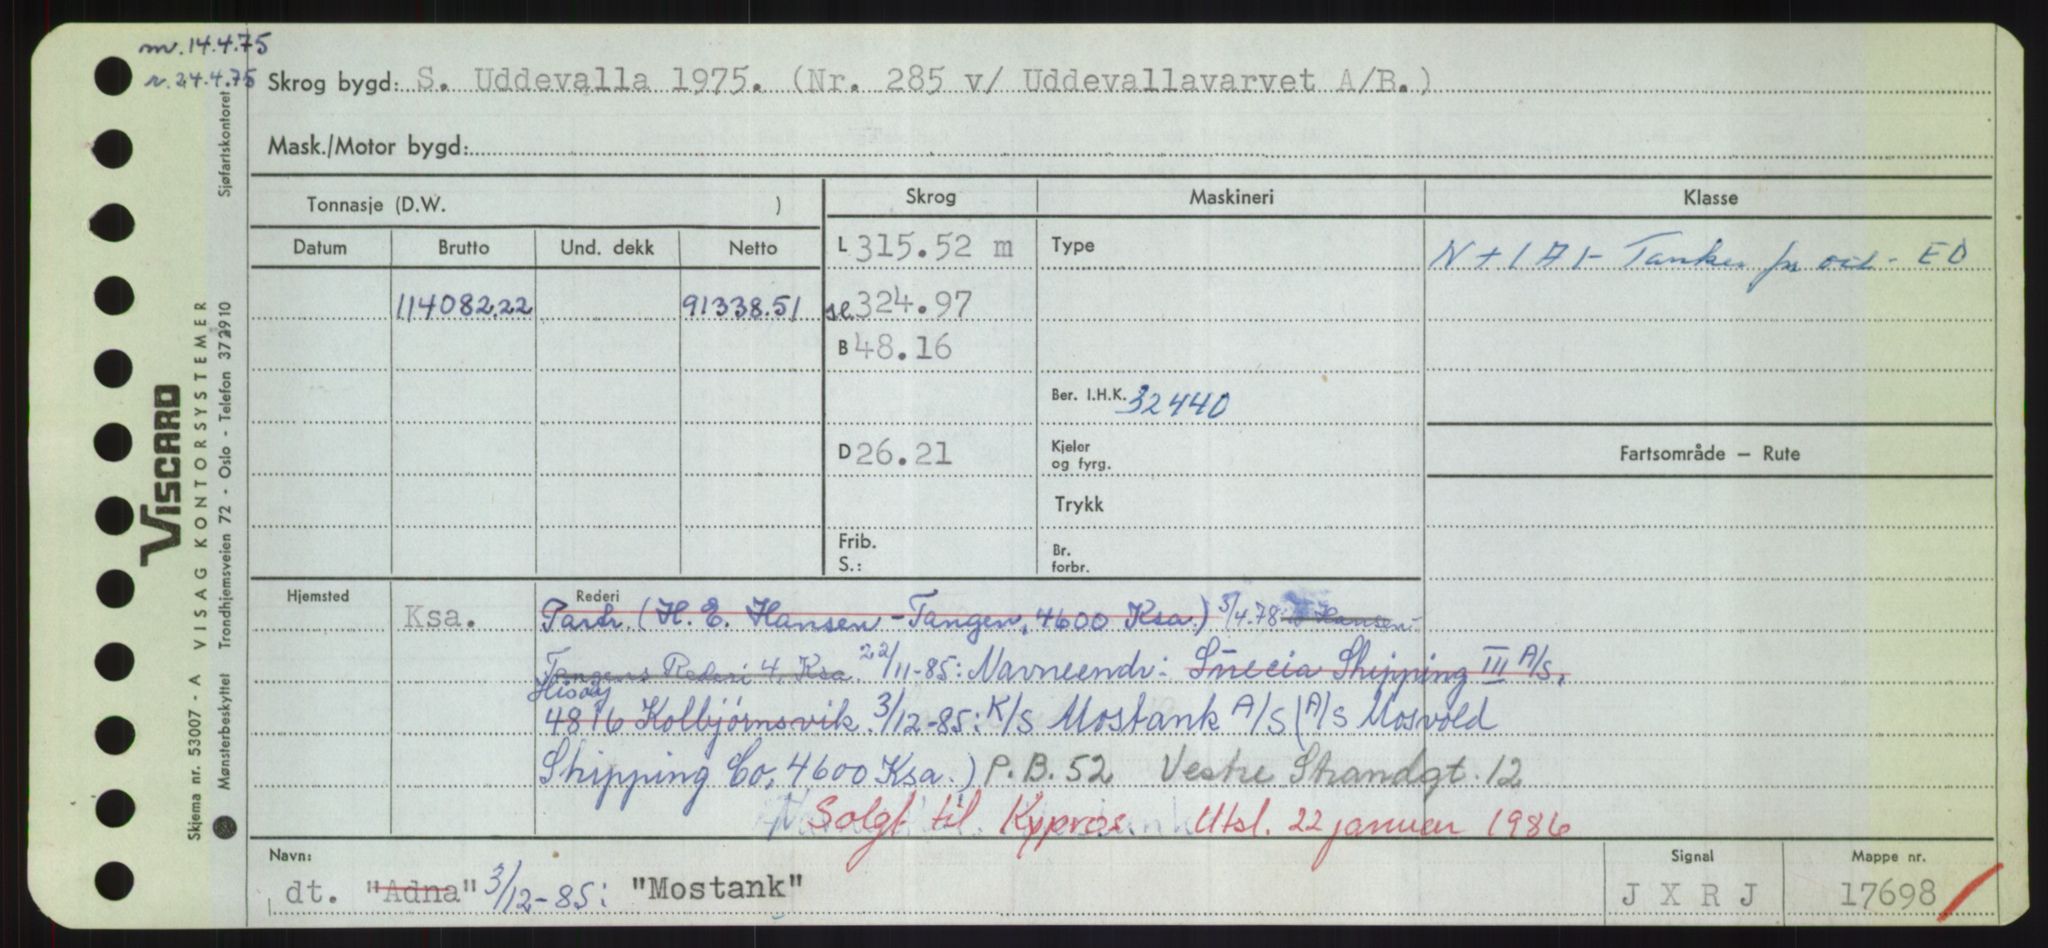 m. 14.4.75
r. 24.4.75
Skrog bygd: S. Uddevalla 1975. (Nr. 285 v/ Uddevallavarvet A/B.)
Mask./Motor bygd:
Tonnasje (D.W. )
Skrog
Maskineri
Klasse
Datum Brutto Und. dekk Netto
L 315.52 m
Type
N + 1 A 1 - Tanker for oil - E0
114082.22 91338.51
se 324.97
B 48.16
Ber. I.H.K. 32440
D 26.21
Kjeler og fyrg.
Fartsområde — Rute
Trykk
Frib.
S.:
Br. forbr.
Hjemsted Ksa.
Rederi
Partr. (H. E. Hansen-Tangen, 4600 Ksa.) 3/4.78 Hansen-
Tangens Rederi 4, Ksa. 22/11-85: Navneendr: Shipping III A/S,
Hisøy
4816 Kolbjørnsvik. 3/12-85: K/S Mostank A/S (A/S Mosvold
Shipping Co, 4600 Ksa.) P.B. 52 Vestre Strandgt. 12
Solgt til Kypros Utsl. 22 januar 1986
Navn:
dt. "Adna" 3/12-85: "Mostank"
Signal
J X R J
Mappe nr.
17698
VISCARD
Skjema nr. 53007 - A VISAG KONTORSYSTEMER
Mønsterbeskyttet Trondhjemsveien 72 - Oslo - Telefon 37 2910 Sjøfartskontoret